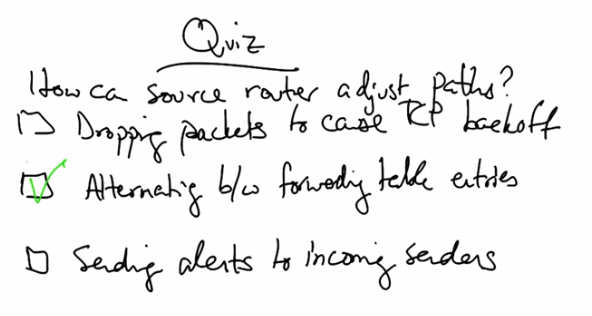 Quiz
How can source router adjust paths?
Dropping packets to cause TCP backoff
Alternating b/w forwarding table entries
Sending alerts to incoming senders